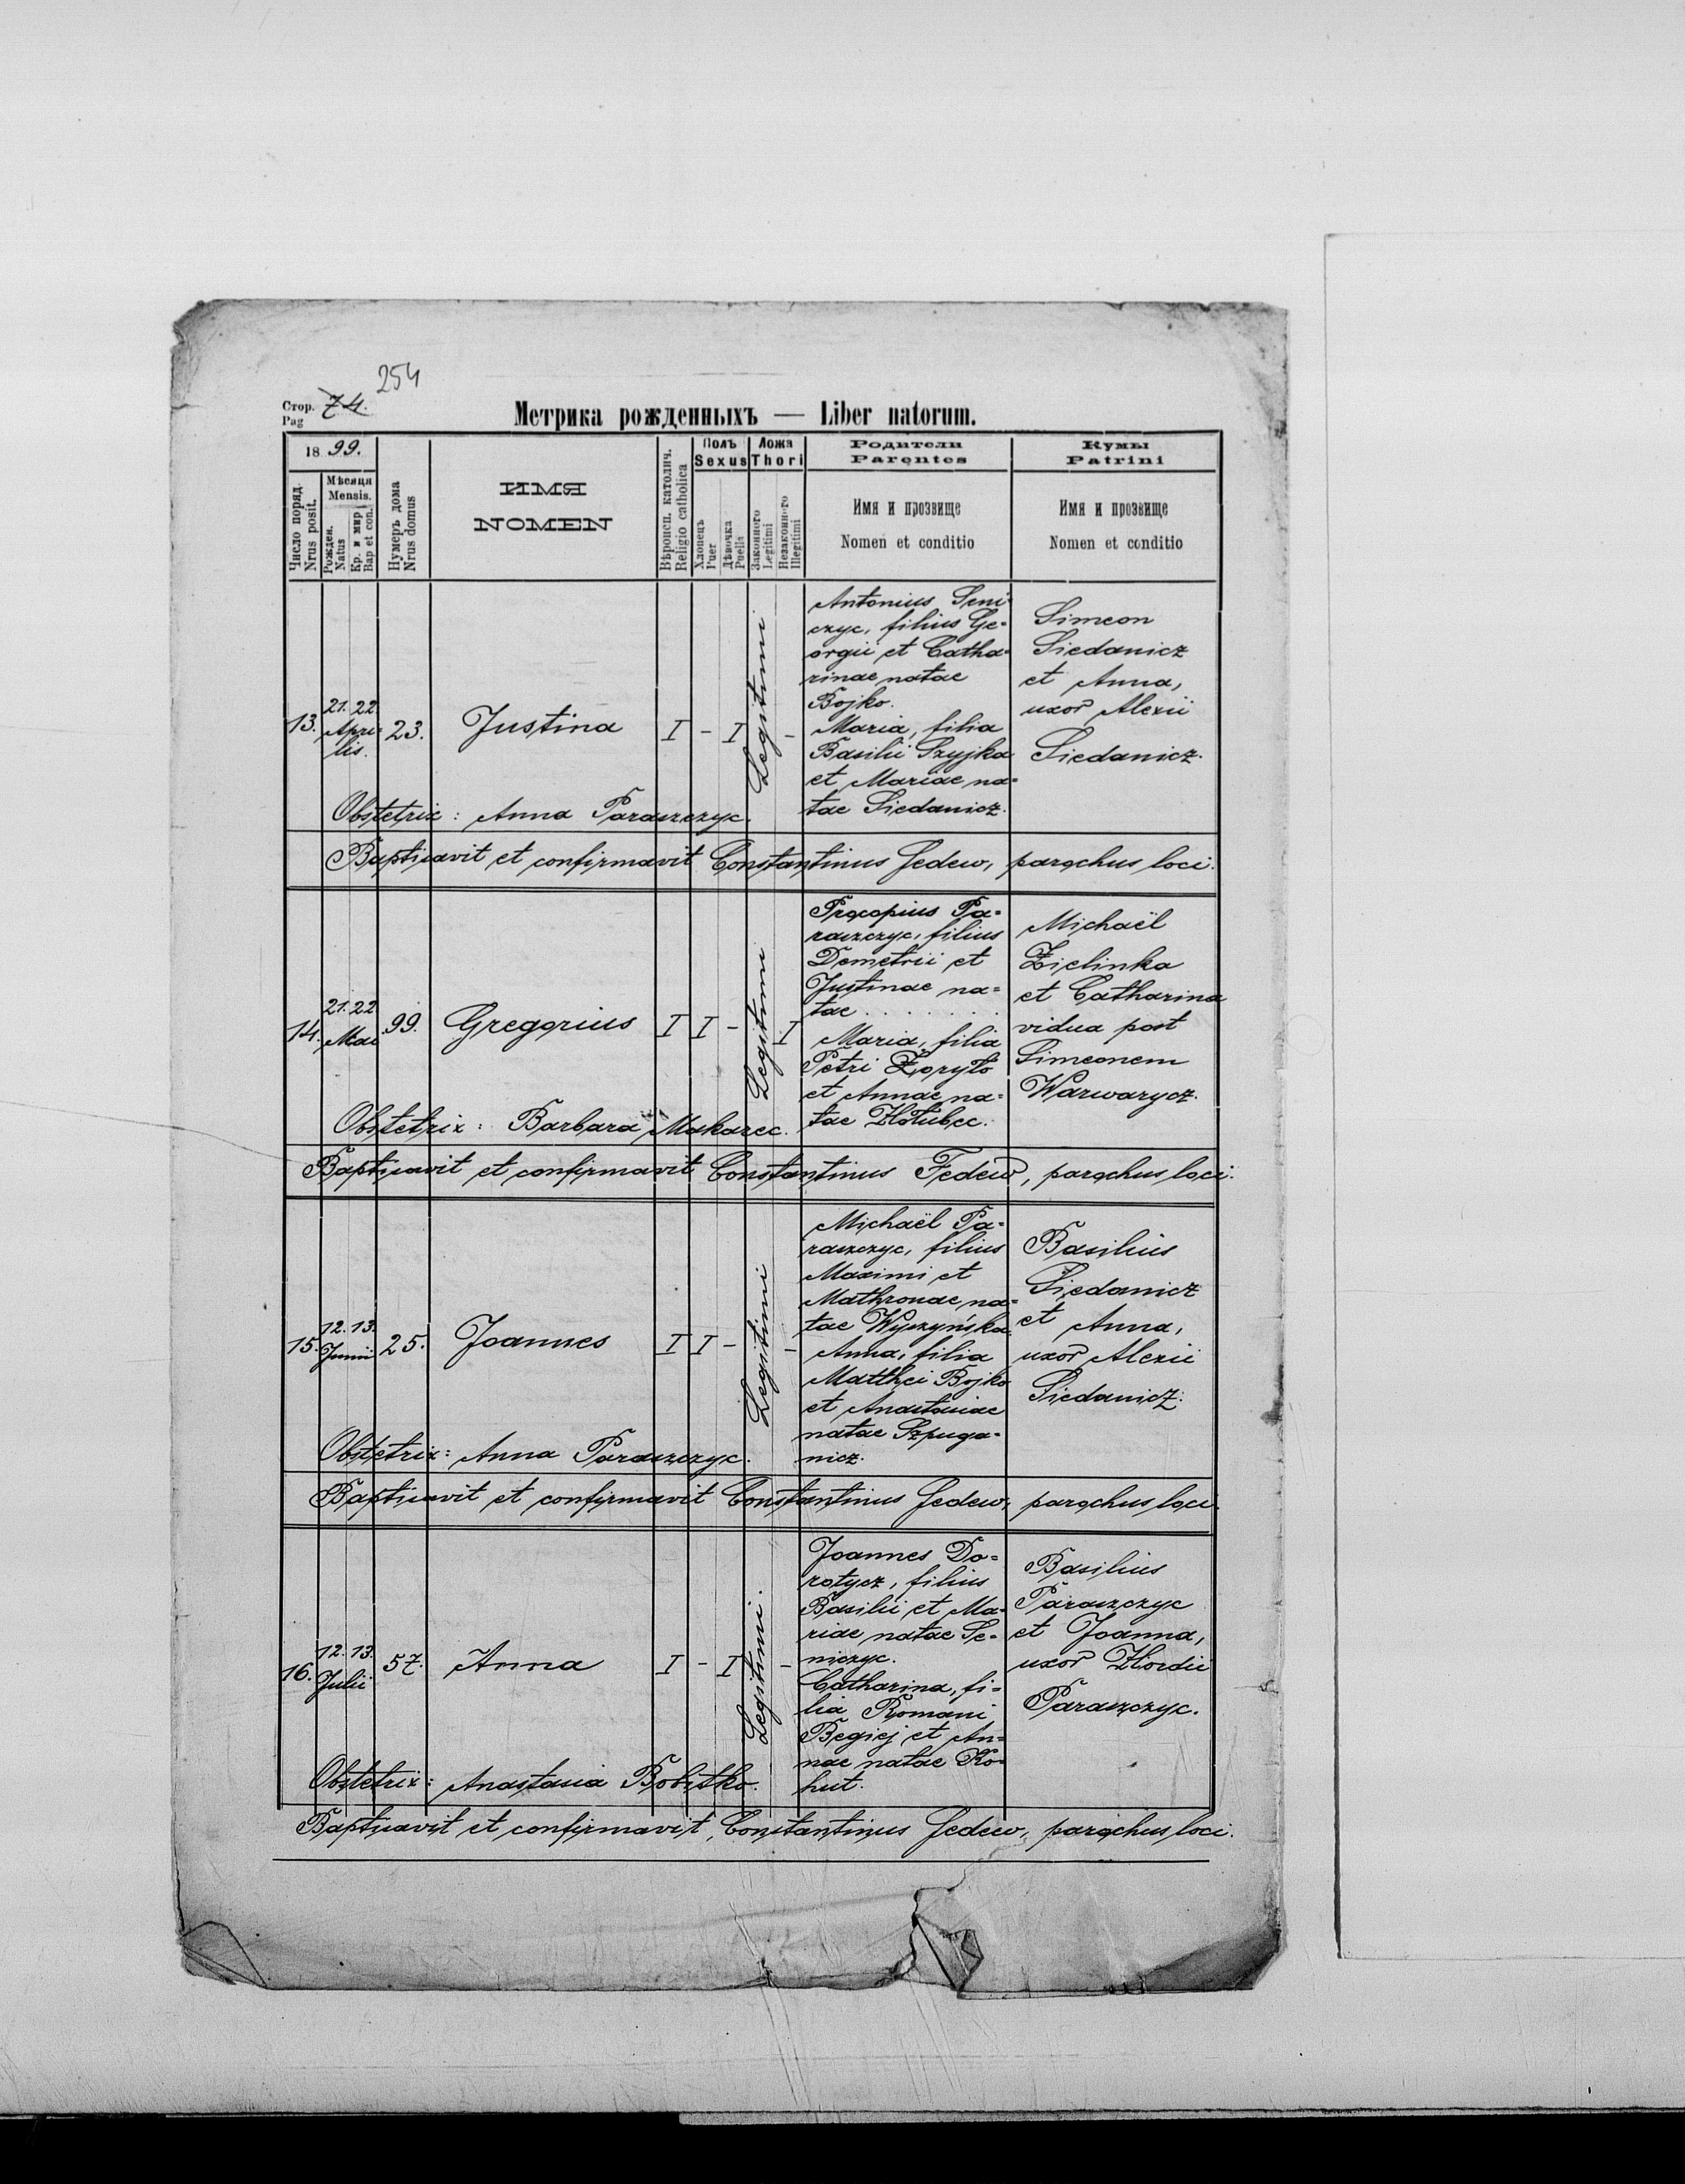 254
Стор. 74.
Pag
Метрика рожденныхъ — Liber natorum.
18 99.
Число поряд.
Nrus posit.
Мѣсяця
Mensis.
Рожден.
Natus
Кр. и мир
Bap et con.
Нумеръ дома
Nrus domus
ИМЯ
NOMEN
Вѣроисп. католич.
Religio catholica
Полъ
Sexus
Хлопецъ
Puer
Дѣвочка
Puella
Ложа
Thori
Законного
Legitimi
Незаконного
Illegitimi
Родители
Parentes
Имя и прозвище
Nomen et conditio
Кумы
Patrini
Имя и прозвище
Nomen et conditio
13.
21. 22
Apri-
lis.
23.
Justina
I - I
Legitimi
-
Antonius Seni-
czyc, filius Ge-
orgii et Catha-
rinae natae
Bojko.
Maria, filia
Basilii Szyjka
et Mariae na-
tae Siedanicz.
Simeon
Siedanicz
et Anna,
uxor Alexii
Siedanicz.
Obstetrix: Anna Paraszczyc.
Baptisavit et confirmavit Constantinus Fedew, parochus loci.
14.
21. 22
Mai
99.
Gregorius
I I -
Legitimi
I
Procopius Pa-
raszczyc, filius
Demetrii et
Justinae na-
tae . . . . . . .
Maria, filia
Petri Zoryło
et Annae na-
tae Hołubec.
Michaël
Zielinka
et Catharina
vidua post
Simeonem
Warwarycz.
Obstetrix: Barbara Makarec.
Baptisavit et confirmavit Constantinus Fedew, parochus loci.
15.
12. 13.
Junii
25.
Joannes
I I -
Legitimi
-
Michaël Pa-
raszczyc, filius
Maximi et
Mathronae na-
tae Wyszyńska.
Anna, filia
Matthei Bojko
et Anastasiae
natae Szpuga-
nicz.
Basilius
Siedanicz
et Anna,
uxor Alexii
Siedanicz.
Obstetrix: Anna Paraszczyc.
Baptisavit et confirmavit Constantinus Fedew, parochus loci.
16.
12. 13.
Julii
57.
Anna
I - I
Legitimi.
-
Joannes Do-
rotycz, filius
Basilii et Ma-
riae natae Se-
niczyc.
Catharina, fi-
lia Romani
Begiej et An-
nae natae Ko-
hut.
Basilius
Paraszczyc
et Joanna,
uxor Hordii
Paraszczyc.
Obstetrix: Anastasia Bobitko.
Baptisavit et confirmavit, Constantinus Fedew, parochus loci.